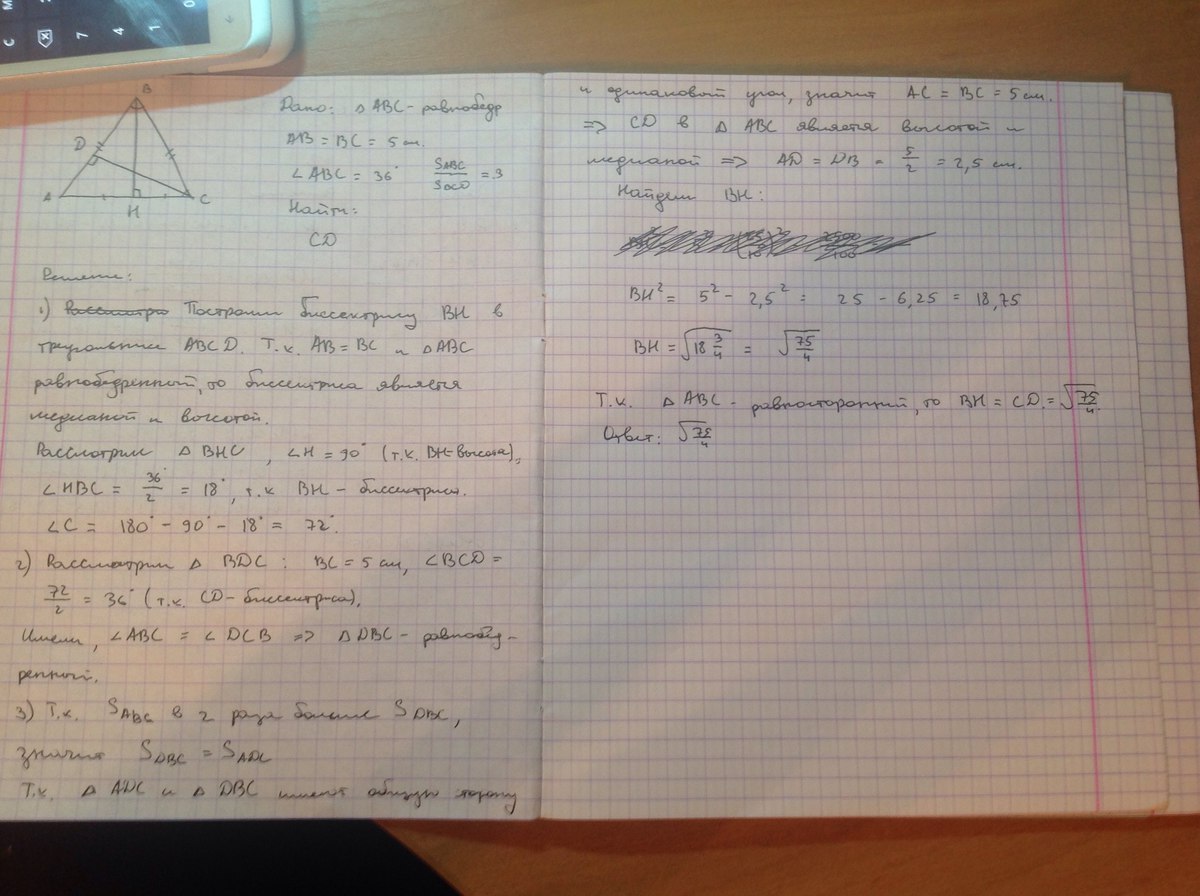 C
7
4
1
0
B
D
A
H
C
Дано: △ ABC - равнобедр
AB = BC = 5 см.
∠ABC = 36° S_ABC / S_DCD = 3
Найти:
CD
Решение:
1) Построим биссектрису BH в
треугольнике ABCD. Т.к. AB = BC и △ABC
равнобедренный, то биссектриса является
медианой и высотой.
Рассмотрим △ BHC, ∠H = 90° (т.к. BH-высота),
∠HBC = 36°/2 = 18°, т.к BH - биссектриса.
∠C = 180° - 90° - 18° = 72°.
2) Рассмотрим △ BDC : BC = 5 см, ∠BCD =
72/2 = 36° (т.к. CD - биссектриса),
Имеем, ∠ABC = ∠DCB => △DBC - равнобед-
ренный.
3) Т.к. S_ABC в 2 раза больше S_DBC,
значит S_DBC = S_ADC
Т.к. △ ADC и △ DBC имеют общую сторону
и одинаковый угол, значит AC = BC = 5 см.
=> CD в △ ABC является высотой и
медианой => AD = DB = 5/2 = 2,5 см.
Найдем BH:
BH² = 5² - 2,5² = 25 - 6,25 = 18,75
BH = √(18 3/4) = √(75/4)
Т.к. △ ABC - равносторонний, то BH = CD = √(75/4).
Ответ: √(75/4)